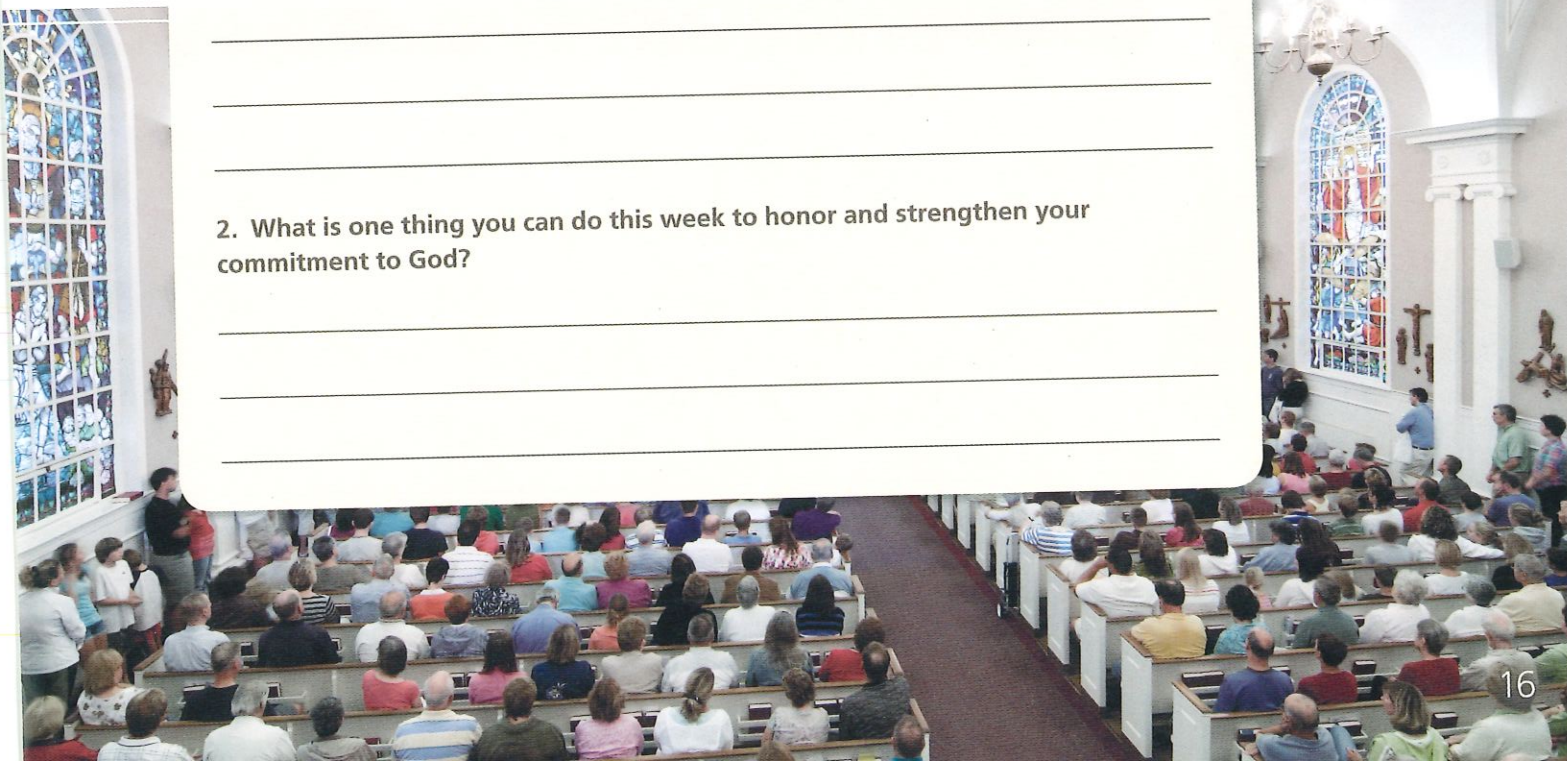 2. What is one thing you can do this week to honor and strengthen your
commitment to God?
16